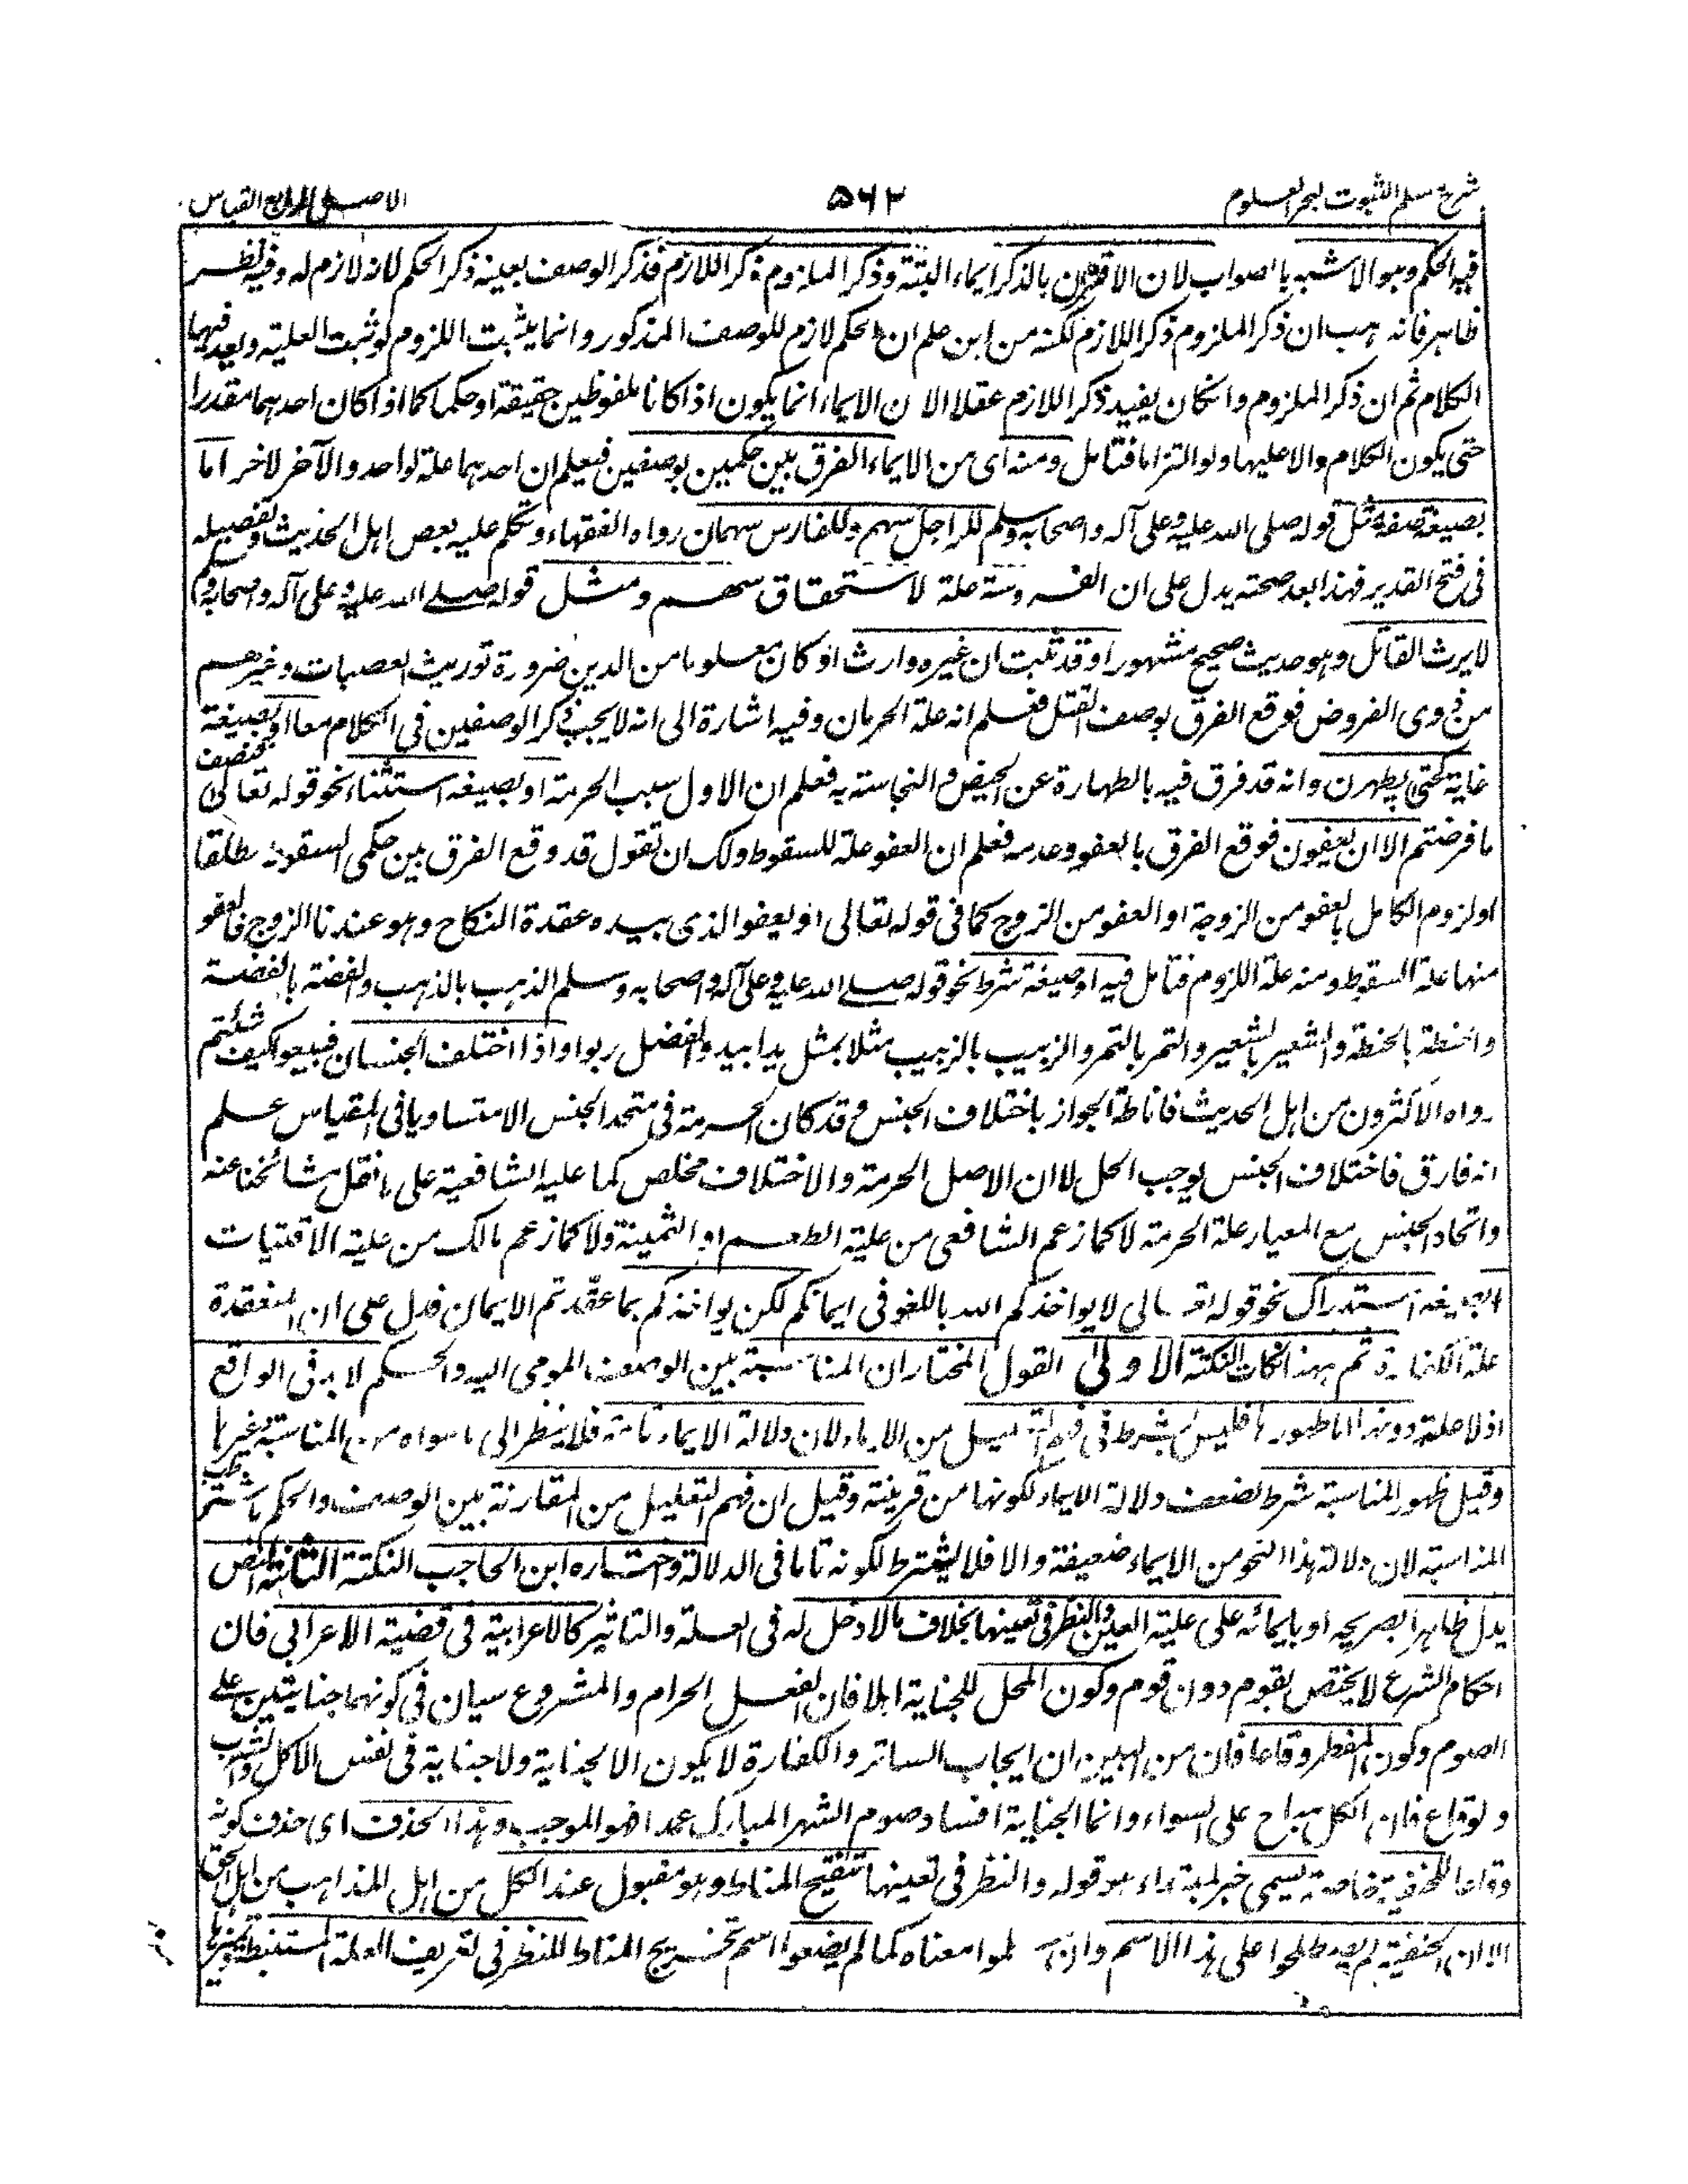 شرح مسلم الثبوت لبحر العلوم
۵۶۲
الاصل الرابع القياس
فيه الحكم وهو الاشبه بالصواب لان الاقتران بالذكر ايماء البتة وذكر الملزوم ذكر اللازم فذكر الوصف بعينه ذكر الحكم لانه لازم له وفيه نظر
ظاهر فانه هب ان ذكر الملزوم ذكر اللازم لكنه من اين علم ان الحكم لازم للوصف المذكور وانما يثبت اللزوم لو ثبت العلية وبعد فيها
الكلام ثم ان ذكر الملزوم وانكان يفيد ذكر اللازم عقلا الا ان الايماء انما يكون اذا كانا ملفوظين حقيقة او حكما كما اذا كان احدهما مقدرا
حتى يكون الكلام دالا عليها ولو التزاما فتامل ومنه اى من الايماء الفرق بين حكمين بوصفين فيعلم ان احدهما علة لواحد والآخر لآخر اما
بصيغة صفة مثل قوله صلى الله عليه وعلى آله واصحابه وسلم للراجل سهم وللفارس سهمان رواه الفقهاء وتكلم عليه بعض اهل الحديث وتفصيله
فى فتح القدير فهذا بعد صحته يدل على ان الفروسة علة لاستحقاق سهم ومثل قوله صلى الله عليه وعلى آله واصحابه وسلم
لا يرث القاتل وهو حديث صحيح مشهور او قد ثبت ان غيره وارث او كان معلوما من الدين ضرورة توريث العصبات وغيرهم
من ذوى الفروض فوقع الفرق بوصف القتل فعلم انه علة الحرمان وفيه اشارة الى انه لا يجب ذكر الوصفين فى الكلام معا او بصيغة
غاية كحتى يطهرن وانه قد فرق فيه بالطهارة عن الحيض والنجاسة به فعلم ان الاول سبب الحرمة او بصيغة استثناء نحو قوله تعالى فنصف
ما فرضتم الا ان يعفون فوقع الفرق بالعفو وعدمه فعلم ان العفو علة للسقوط ولك ان تقول قد وقع الفرق بين حكمى السقوط مطلقا
او لزوم الكامل بالعفو من الزوجة او العفو من الزوج كما فى قوله تعالى او يعفو الذى بيده عقدة النكاح وهو عندنا الزوج فالعفو
منها علة السقوط ومنه علة اللزوم فتامل فيه او صيغة شرط نحو قوله صلى الله عليه وعلى آله واصحابه وسلم الذهب بالذهب والفضة بالفضة
والحنطة بالحنطة والشعير بالشعير والتمر بالتمر والزبيب بالزبيب مثلا بمثل يدا بيد والفضل ربوا واذا اختلف الجنسان فبيعوا كيف شئتم
رواه الاكثرون من اهل الحديث فاناطة الجواز باختلاف الجنس وقد كان الحرمة فى متحد الجنس الا متساويا فى المقياس علم
انه فارق فاختلاف الجنس يوجب الحل لا ان الاصل الحرمة والاختلاف مخلص كما عليه الشافعية على ما نقل مشائخنا عنه
واتحاد الجنس مع المعيار علة الحرمة لا كما زعم الشافعى من علية الطعم او الثمنية ولا كما زعم مالك من علية الاقتيات
او بصيغة استدراك نحو قوله تعالى لا يواخذكم الله باللغو فى ايمانكم لكن يواخذكم بما عقدتم الايمان فدل على ان المنعقدة
علة الكفارة ثم ههنا نكات النكتة الاولى القول المختار ان المناسبة بين الوصف المومى اليه والحكم لا بد فى الواقع
اذ لا علة دونها اما ظهورها فليس بشرط فى فهم التعليل من الايماء لان دلالة الايماء تامة فلا ينظر الى ما سواه من المناسبة وغيرها
وقيل ظهور المناسبة شرط لضعف دلالة الايماء لكونها من قرينة وقيل ان فهم التعليل من المقارنة بين الوصف والحكم يشترط
المناسبة لان دلالة هذا النحو من الايماء ضعيفة والا فلا يشترط لكونه تاما فى الدلالة واختاره ابن الحاجب النكتة الثانية النص
يدل ظاهرا بصريحه او بايمائه على علية العين والنظر فى تعينها بخلاف ما لا دخل له فى العلة والتاثير كالاعرابية فى قضية الاعرابى فان
احكام الشرع لا يختص بقوم دون قوم وكون المحل للجناية اهلا فان الفعل الحرام والمشروع سيان فى كونهما جنايتين على
الصوم وكون المفطر وقاعا فان من البين ان ايجاب الساتر والكفارة لا يكون الا لجناية ولا جناية فى نفس الاكل والشرب
والوقاع فان الكل مباح على السواء وانما الجناية افساد صوم الشهر المبارك عمدا فهو الموجب وهذا الحذف اى حذف كونه
وقاعا للحنفية خاصة يسمى خبر لمبتداء هو قوله والنظر فى تعينها تنقيح المناط وهو مقبول عند الكل من اهل المذاهب من اهل الحق
الا ان الحنفية لم يصطلحوا على هذا الاسم وان سلموا معناه كما لم يضعوا اسم تخريج المناط للنظر فى تعريف العلة المستنبطة بغيرها